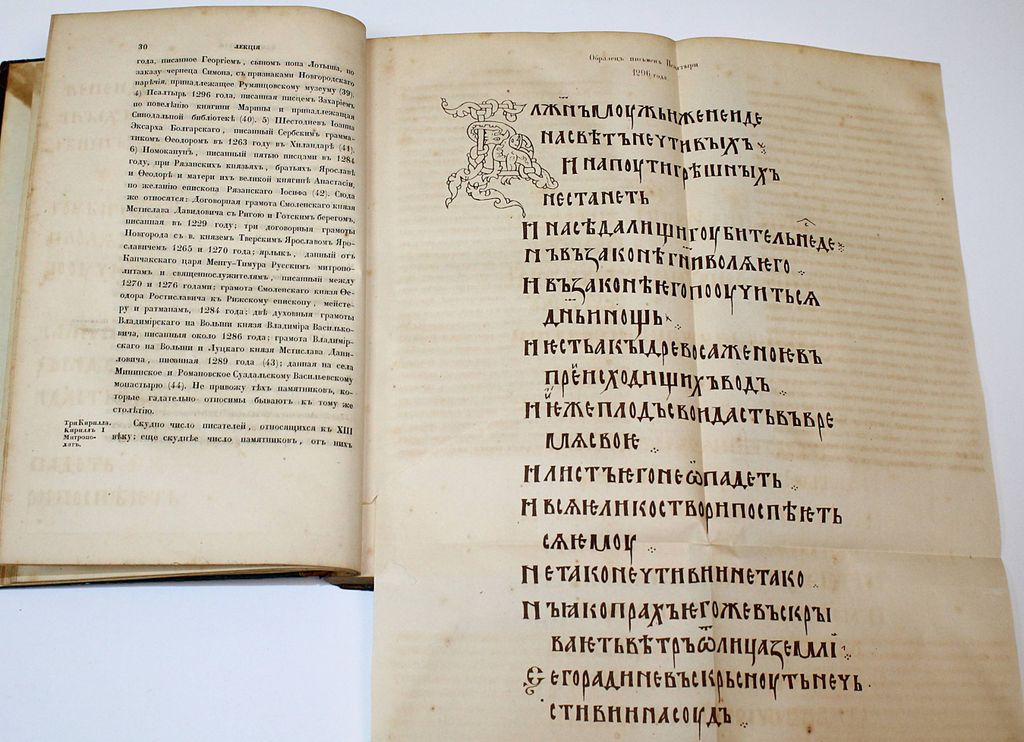 30
ЛЕКЦІЯ
года, писанное Георгіемъ, сыномъ попа Лотыша, по
заказу чернеца Симона, съ признаками Новгородскаго
нарѣчія, принадлежащее Румянцовскому музеуму (39).
4) Псалтырь 1296 года, писанная писцемъ Захаріемъ
по повелѣнію княгини Марины и принадлежащая
Синодальной библіотекѣ (40). 5) Шестодневъ Іоанна
Эксарха Болгарскаго, писанный Сербскимъ грамма-
тикомъ Ѳеодоромъ въ 1263 году въ Хиландарѣ (41).
6) Номоканунъ, писанный пятью писцами въ 1284
году, при Рязанскихъ князьяхъ, братьяхъ Ярославѣ
и Ѳеодорѣ и матери ихъ великой княгинѣ Анастасіи,
по желанію епископа Рязанскаго Іосифа (42). Сюда
же относятся: Договорная грамота Смоленскаго князя
Мстислава Давидовича съ Ригою и Готскимъ берегомъ,
писанная въ 1229 году; три договорныя грамоты
Новгорода съ в. княземъ Тверскимъ Ярославомъ Яро-
славичемъ 1265 и 1270 года; ярлыкъ, данный отъ
Капчакскаго царя Менгу-Тимура Русскимъ митропо-
литамъ и священнослужителямъ, писанный между
1270 и 1276 годами; грамота Смоленскаго князя Ѳе-
одора Ростиславича къ Рижскому епископу, мейсте-
ру и ратманамъ, 1284 года; двѣ духовныя грамоты
Владимірскаго на Волыни князя Владиміра Василько-
вича, писанныя около 1286 года; грамота Владимір-
скаго на Волыни и Луцкаго князя Мстислава Дани-
ловича, писанная 1289 года (43); данная на села
Мининское и Романовское Суздальскому Васильевскому
монастырю (44). Не привожу тѣхъ памятниковъ, ко-
торые гадательно относимы бываютъ къ тому же
столѣтію.
Три Кирилла.
Кириллъ I
Митропо-
литъ.
Скудно число писателей, относящихся къ XIII
вѣку; еще скуднѣе число памятниковъ, отъ нихъ
Образецъ письменъ Псалтыри
1296 года.
Блж҃нъмоужьиженеиде
насвѣтънечтивыхъ
Инапоутигрѣшныхъ
нестанеть
Инасѣдалищигоубительнеде
Нъвъзаконѣгн҃иволѩѥго
Ивъзаконѣѥгопооучитьсѧ
дн҃ьинощь
Иѥстьꙗкыдревосаженоѥвъ
преисходищихъводъ
Иѥжеплодъсвоидастьвъвре
мѧсвоѥ
Илистъѥгонеѿпадеть
Ивсѧѥликостворипоспѣѥть
сѧѥмоу
Нетаконечтивиинетако
Нъꙗкопрахъѥгожевъскры
ваѥтьвѣтръѿлицаземлі
Сегорадиневъскрьсноутьнечь
стивиинасоудъ